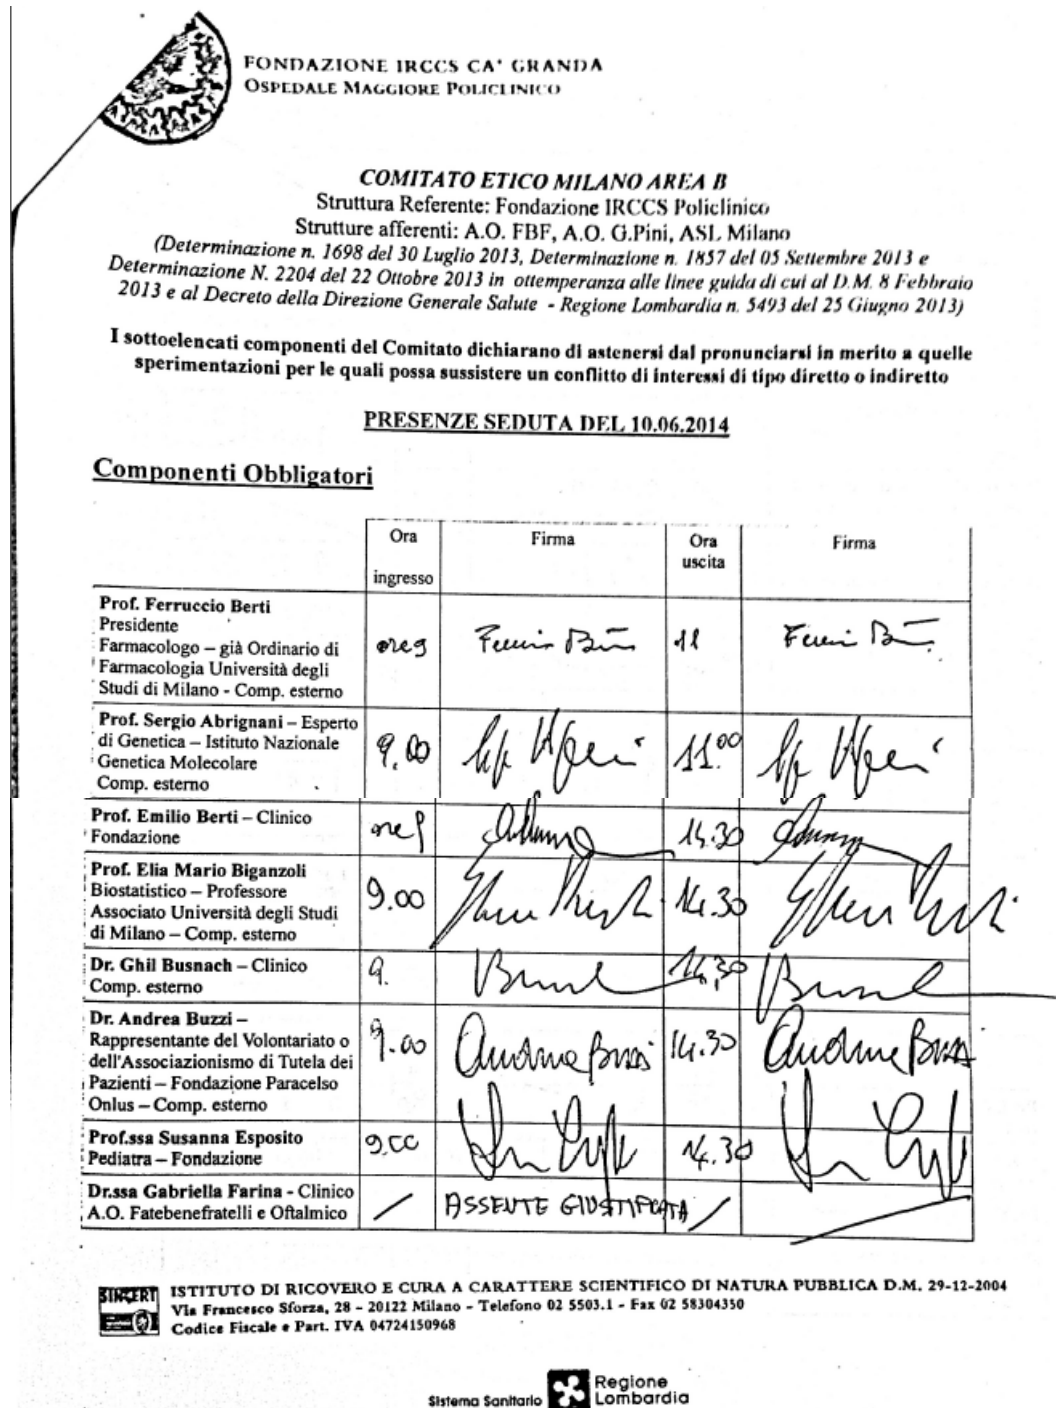 FONDAZIONE IRCCS CA' GRANDA
OSPEDALE MAGGIORE POLICLINICO
COMITATO ETICO MILANO AREA B
Struttura Referente: Fondazione IRCCS Policlinico
Strutture afferenti: A.O. FBF, A.O. G.Pini, ASL Milano
(Determinazione n. 1698 del 30 Luglio 2013, Determinazione n. 1857 del 05 Settembre 2013 e
Determinazione N. 2204 del 22 Ottobre 2013 in ottemperanza alle linee guida di cui al D.M. 8 Febbraio
2013 e al Decreto della Direzione Generale Salute - Regione Lombardia n. 5493 del 25 Giugno 2013)
I sottoelencati componenti del Comitato dichiarano di astenersi dal pronunciarsi in merito a quelle
sperimentazioni per le quali possa sussistere un conflitto di interessi di tipo diretto o indiretto
PRESENZE SEDUTA DEL 10.06.2014
Componenti Obbligatori
Ora ingresso Firma Ora uscita Firma
Prof. Ferruccio Berti
Presidente
Farmacologo – già Ordinario di
Farmacologia Università degli
Studi di Milano - Comp. esterno
ore 9 11
Prof. Sergio Abrignani – Esperto
di Genetica – Istituto Nazionale
Genetica Molecolare
Comp. esterno
9.00 11.00
Prof. Emilio Berti – Clinico
Fondazione
ore 9 14.30
Prof. Elia Mario Biganzoli
Biostatistico – Professore
Associato Università degli Studi
di Milano – Comp. esterno
9.00 14.30
Dr. Ghil Busnach – Clinico
Comp. esterno
9. 14,30
Dr. Andrea Buzzi –
Rappresentante del Volontariato o
dell'Associazionismo di Tutela dei
Pazienti – Fondazione Paracelso
Onlus – Comp. esterno
9.00 Andrea Buzzi 14.30 Andrea Buzzi
Prof.ssa Susanna Esposito
Pediatra – Fondazione
9.00 14.30
Dr.ssa Gabriella Farina - Clinico
A.O. Fatebenefratelli e Oftalmico
/ ASSENTE GIUSTIFICATA /
SINCERT
ISTITUTO DI RICOVERO E CURA A CARATTERE SCIENTIFICO DI NATURA PUBBLICA D.M. 29-12-2004
Via Francesco Sforza, 28 - 20122 Milano - Telefono 02 5503.1 - Fax 02 58304350
Codice Fiscale e Part. IVA 04724150968
Sistema Sanitario Regione
Lombardia